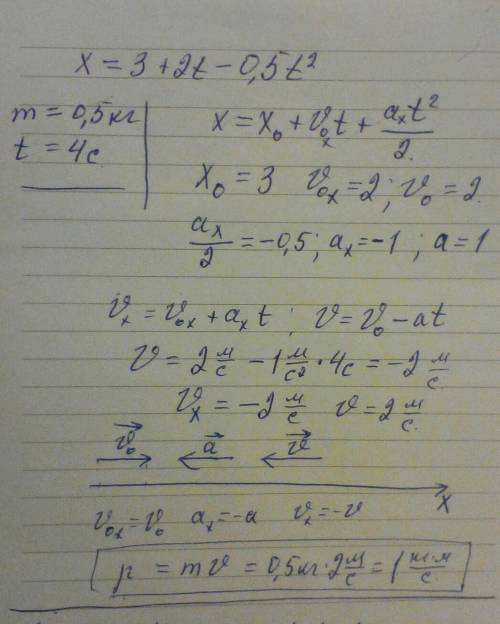 x = 3 + 2t − 0,5t²
m = 0,5 кг
t = 4с
x = x₀ + v₀ₓt + aₓt²/2
x₀ = 3 v₀ₓ = 2; v₀ = 2
aₓ/2 = −0,5; aₓ = −1; a = 1
vₓ = v₀ₓ + aₓt; v = v₀ − at
v = 2 м/с − 1 м/с² · 4с = −2 м/с
vₓ = −2 м/с v = 2 м/с
v₀ a v
x
v₀ₓ = v₀ aₓ = −a vₓ = −v
p = mv = 0,5кг · 2 м/с = 1 кг·м/с